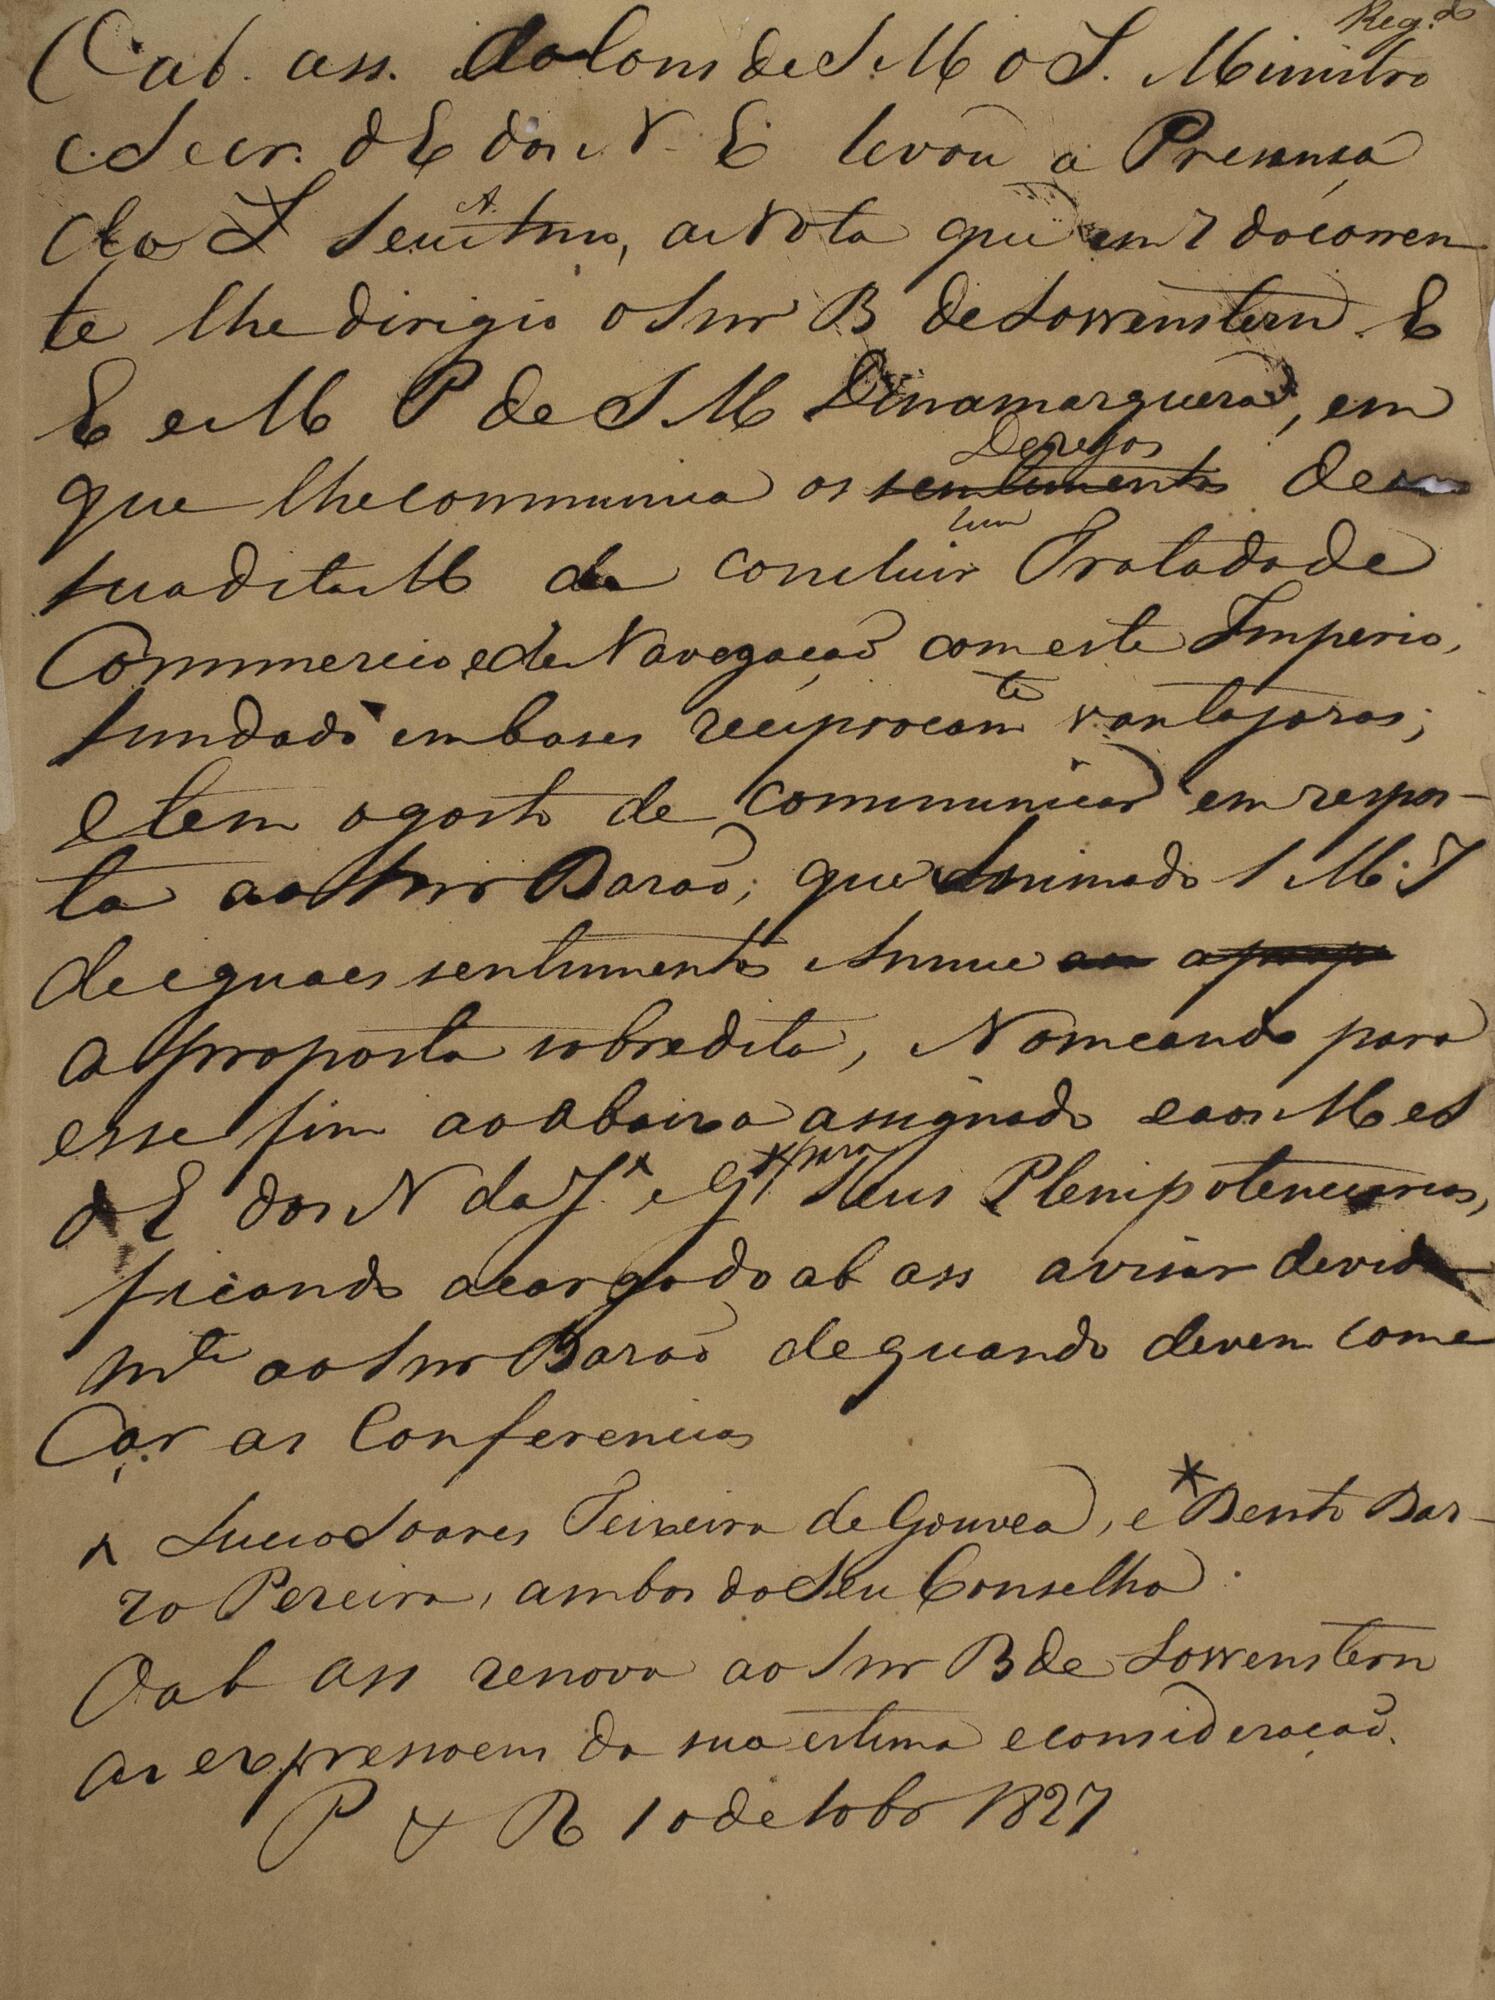 Reg.do
O ab. ass. do Cons de S. M o I. Ministro
e Secr. d E dos N. E levou a Presensa
do I Seu A. Amo, a Nota que em 7 do corren
te lhe dirigio o Snr B de Lowenstern. E
E e M P de S M Dinamarqueza, em
que lhe communica os sentimentos Dezejos de
sua dita M de concluir hum Tratado de
Commercio e de Navegação com este Imperio,
fundado em bases reciprocamte vantajozas;
e tem o gosto de communicar em respos-
ta ao Snr Barão; que Animado S M. I
de eguaes sentimentos Annue a prop
a proposta sobredita, Nomeando para
esse fim ao Abaixo assignado e aos M e S
d E dos N da J.^ e G.* para Seus Plenipotenciarios,
ficando a cargo do ab ass avisar devida
mte ao Snr Barão de quando devem come
Çar as Conferencias
^ Lucio Soares Teixeira de Gouvea, e * Bento Bar-
ro Pereira, ambos do Seu Conselho.
O ab ass renova ao Snr B de Lowenstern
as expressoens da sua estima e consideração.
P &c R 10 de 10bro 1827